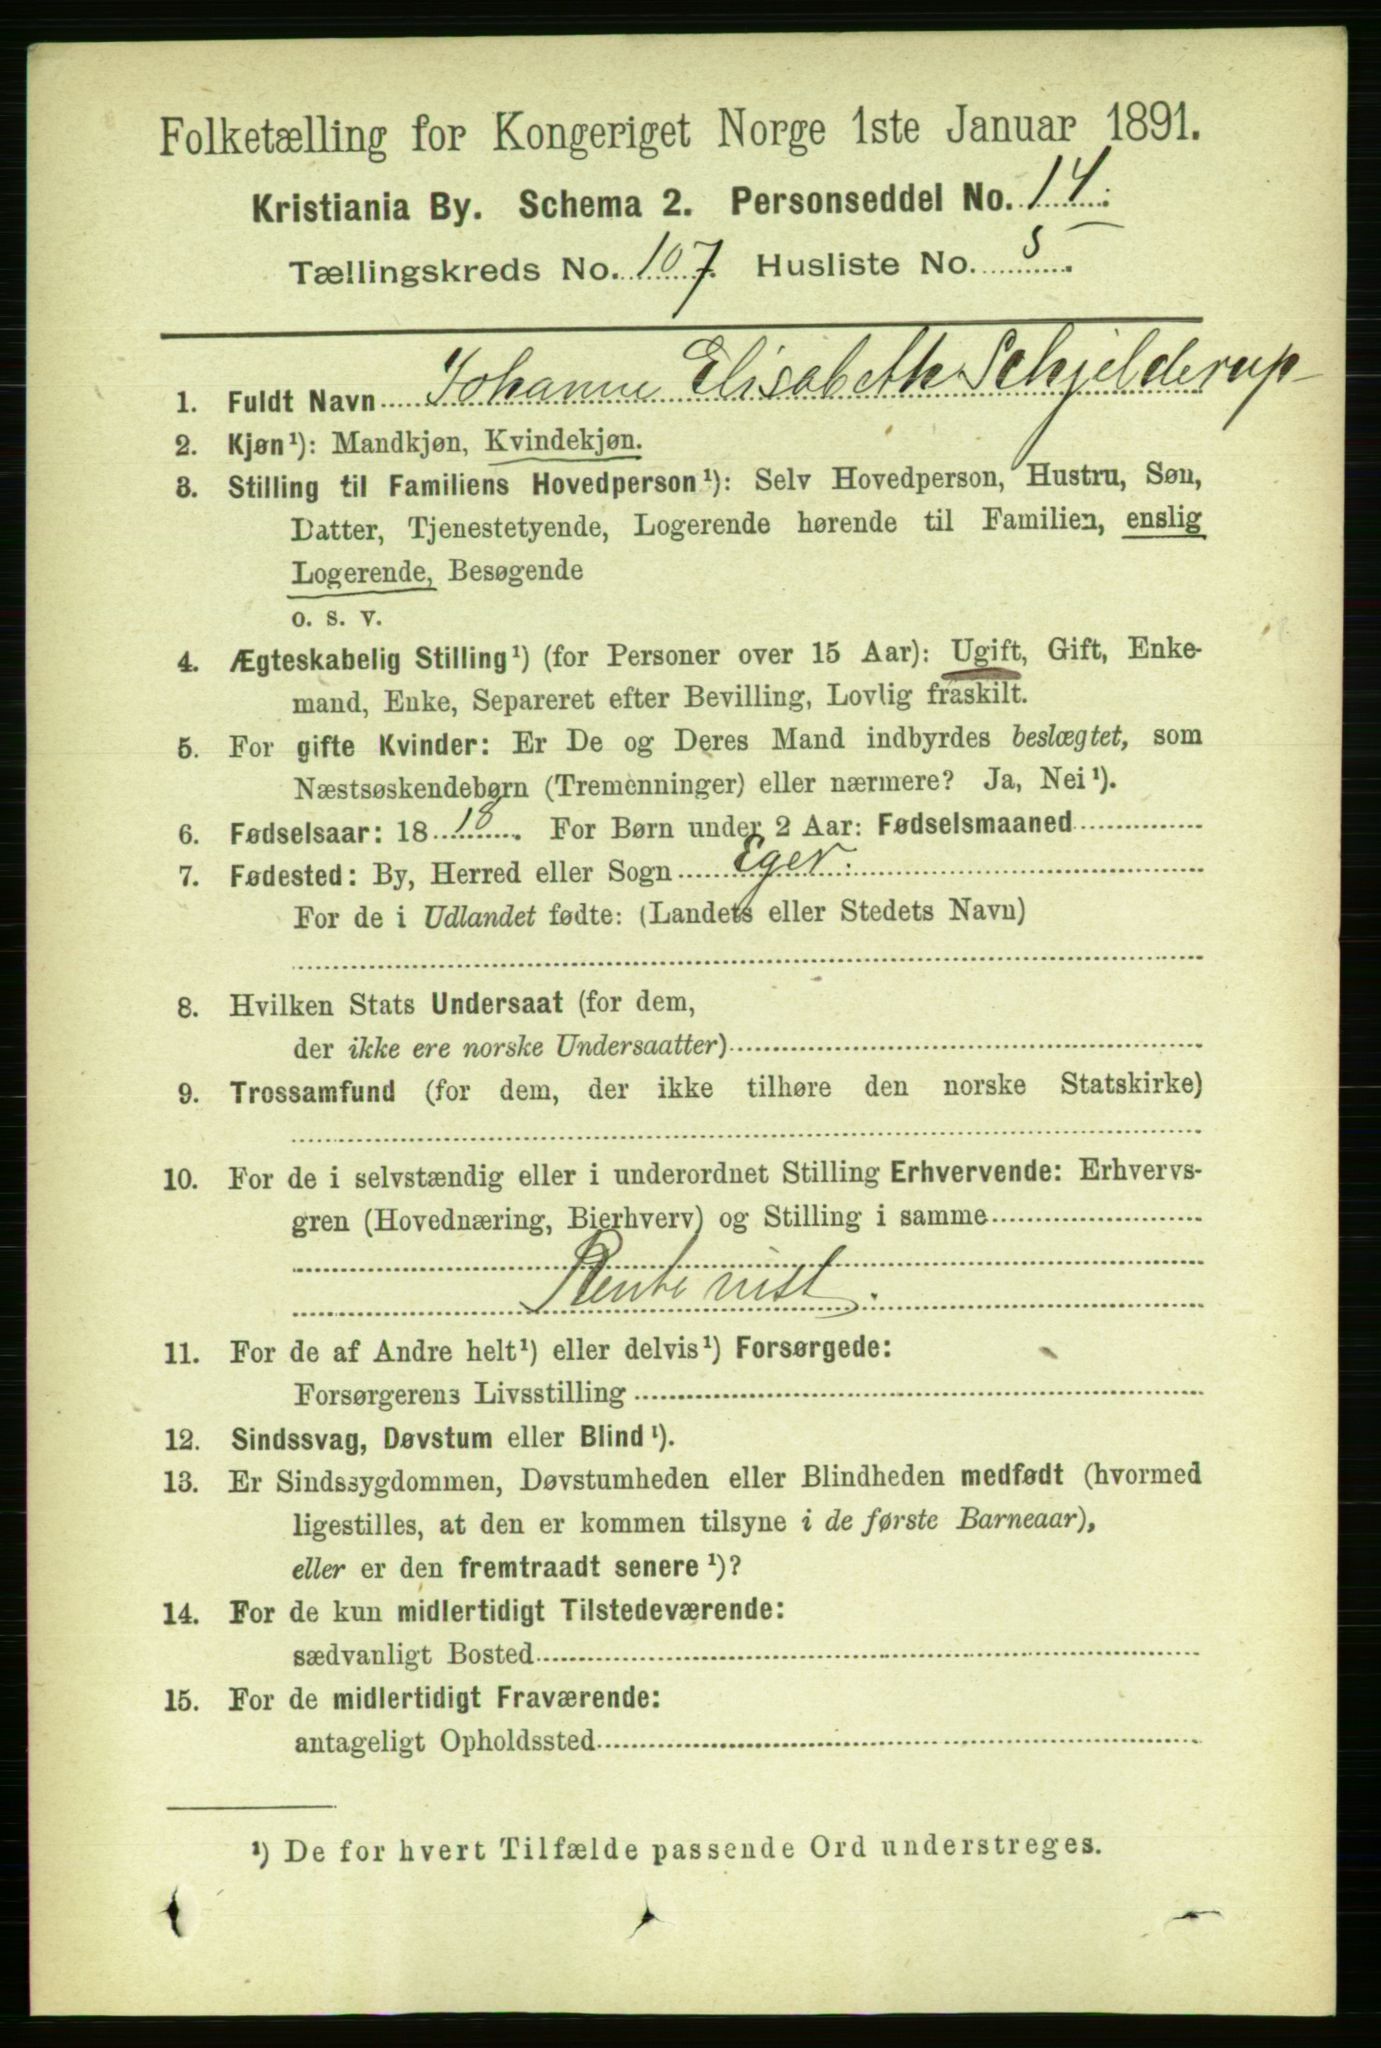 Folketælling for Kongeriget Norge 1ste Januar 1891.
Kristiania By. Schema 2. Personseddel No. 14.
Tællingskreds No. 107. Husliste No. 5.
1. Fuldt Navn Johanne Elisabeth Schjelderup
2. Kjøn¹): Mandkjøn, Kvindekjøn.
3. Stilling til Familiens Hovedperson¹): Selv Hovedperson, Hustru, Søn,
Datter, Tjenestetyende, Logerende hørende til Familien, enslig
Logerende, Besøgende
o. s. v.
4. Ægteskabelig Stilling¹) (for Personer over 15 Aar): Ugift, Gift, Enke-
mand, Enke, Separeret efter Bevilling, Lovlig fraskilt.
5. For gifte Kvinder: Er De og Deres Mand indbyrdes beslægtet, som
Næstsøskendebørn (Tremenninger) eller nærmere? Ja, Nei¹).
6. Fødselsaar: 1818. For Børn under 2 Aar: Fødselsmaaned
7. Fødested: By, Herred eller Sogn Eger.
For de i Udlandet fødte: (Landets eller Stedets Navn)
8. Hvilken Stats Undersaat (for dem,
der ikke ere norske Undersaatter)
9. Trossamfund (for dem, der ikke tilhøre den norske Statskirke)
10. For de i selvstændig eller i underordnet Stilling Erhvervende: Erhvervs-
gren (Hovednæring, Bierhverv) og Stilling i samme
Rentenist.
11. For de af Andre helt¹) eller delvis¹) Forsørgede:
Forsørgerens Livsstilling
12. Sindssvag, Døvstum eller Blind¹).
13. Er Sindssygdommen, Døvstumheden eller Blindheden medfødt (hvormed
ligestilles, at den er kommen tilsyne i de første Barneaar),
eller er den fremtraadt senere¹)?
14. For de kun midlertidigt Tilstedeværende:
sædvanligt Bosted
15. For de midlertidigt Fraværende:
antageligt Opholdssted
¹) De for hvert Tilfælde passende Ord understreges.